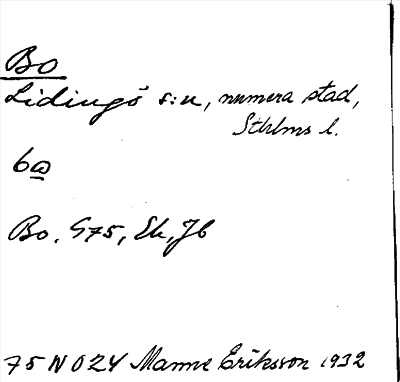 Bo
Lidingö s:n, numera stad,
Sthlms l.
bω
Bo. G75, Ek, Jb
75 N 0 24 Manne Eriksson 1932